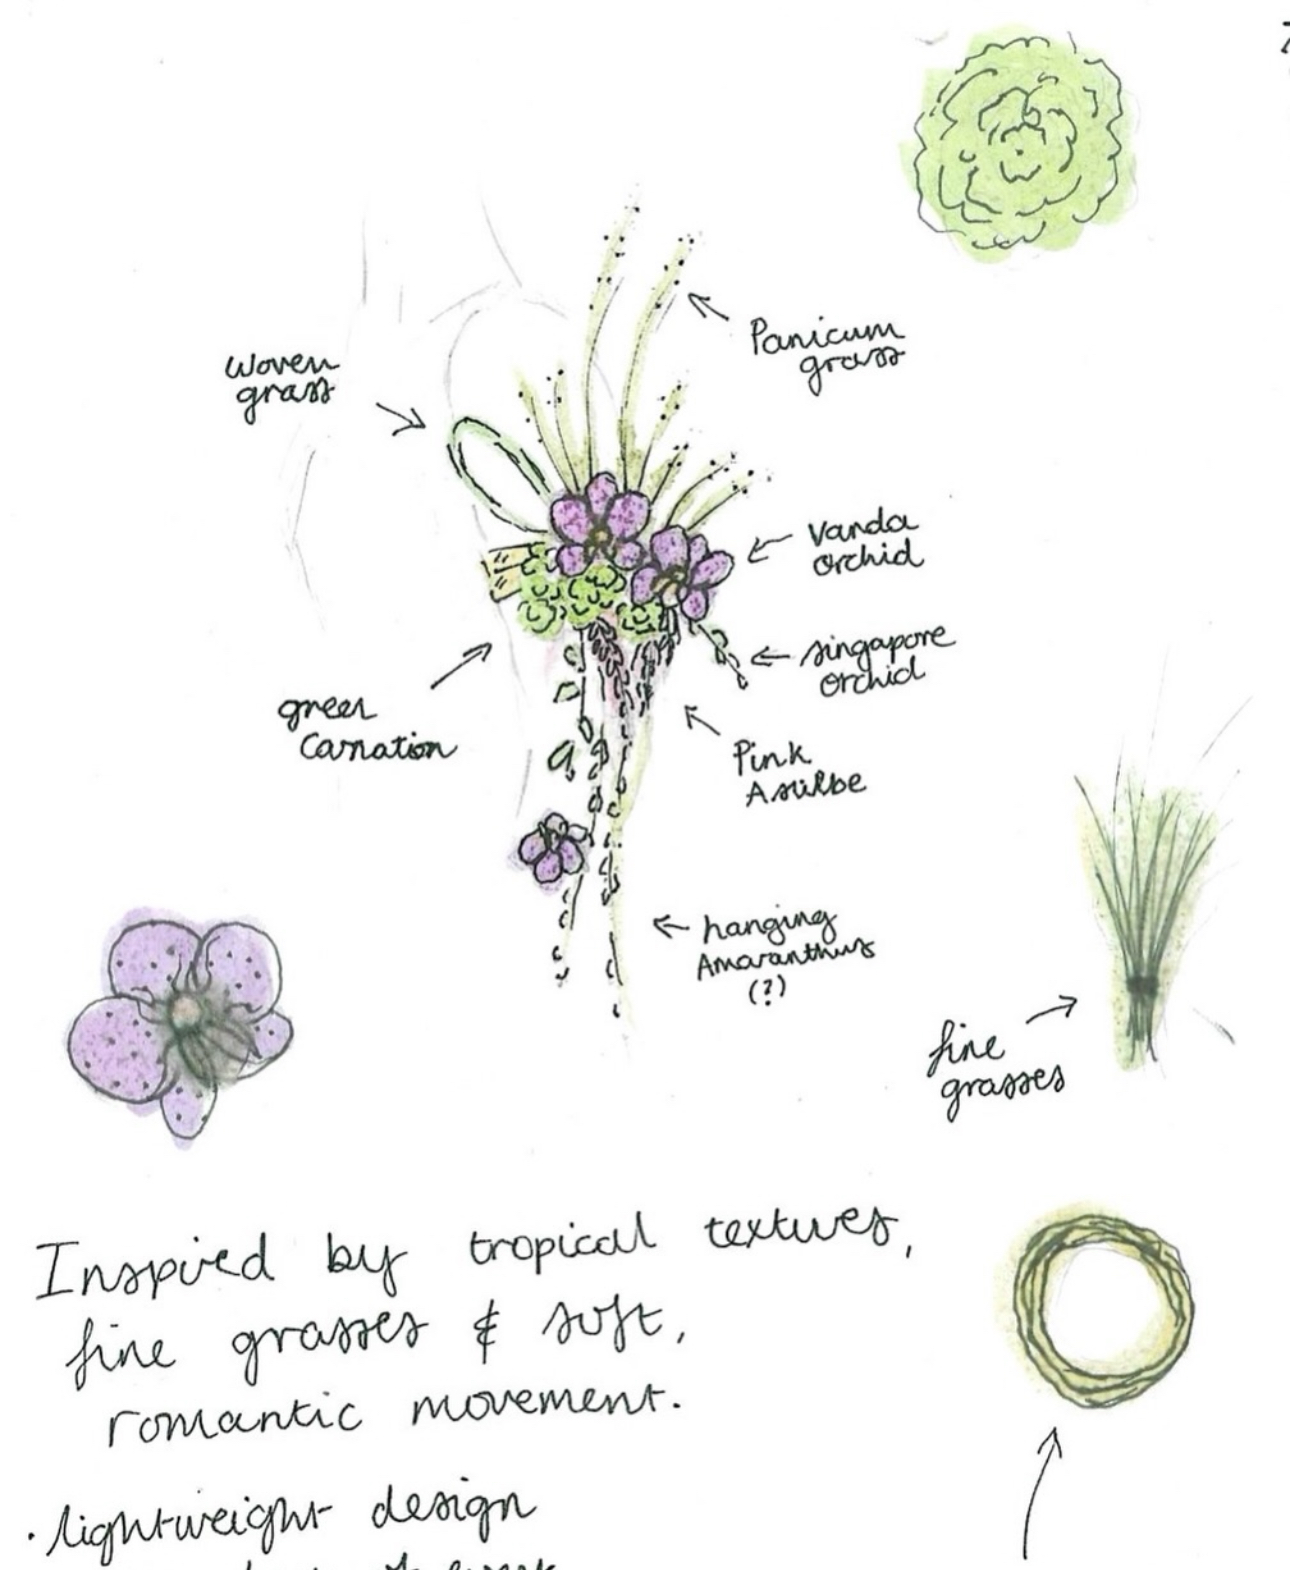 Panicum
grass
woven
grass
Vanda
orchid
singapore
orchid
green
Carnation
Pink
Asilbe
hanging
Amaranthus
(?)
fine
grasses
Inspired by tropical textures,
fine grasses & soft,
romantic movement.
· lightweight design